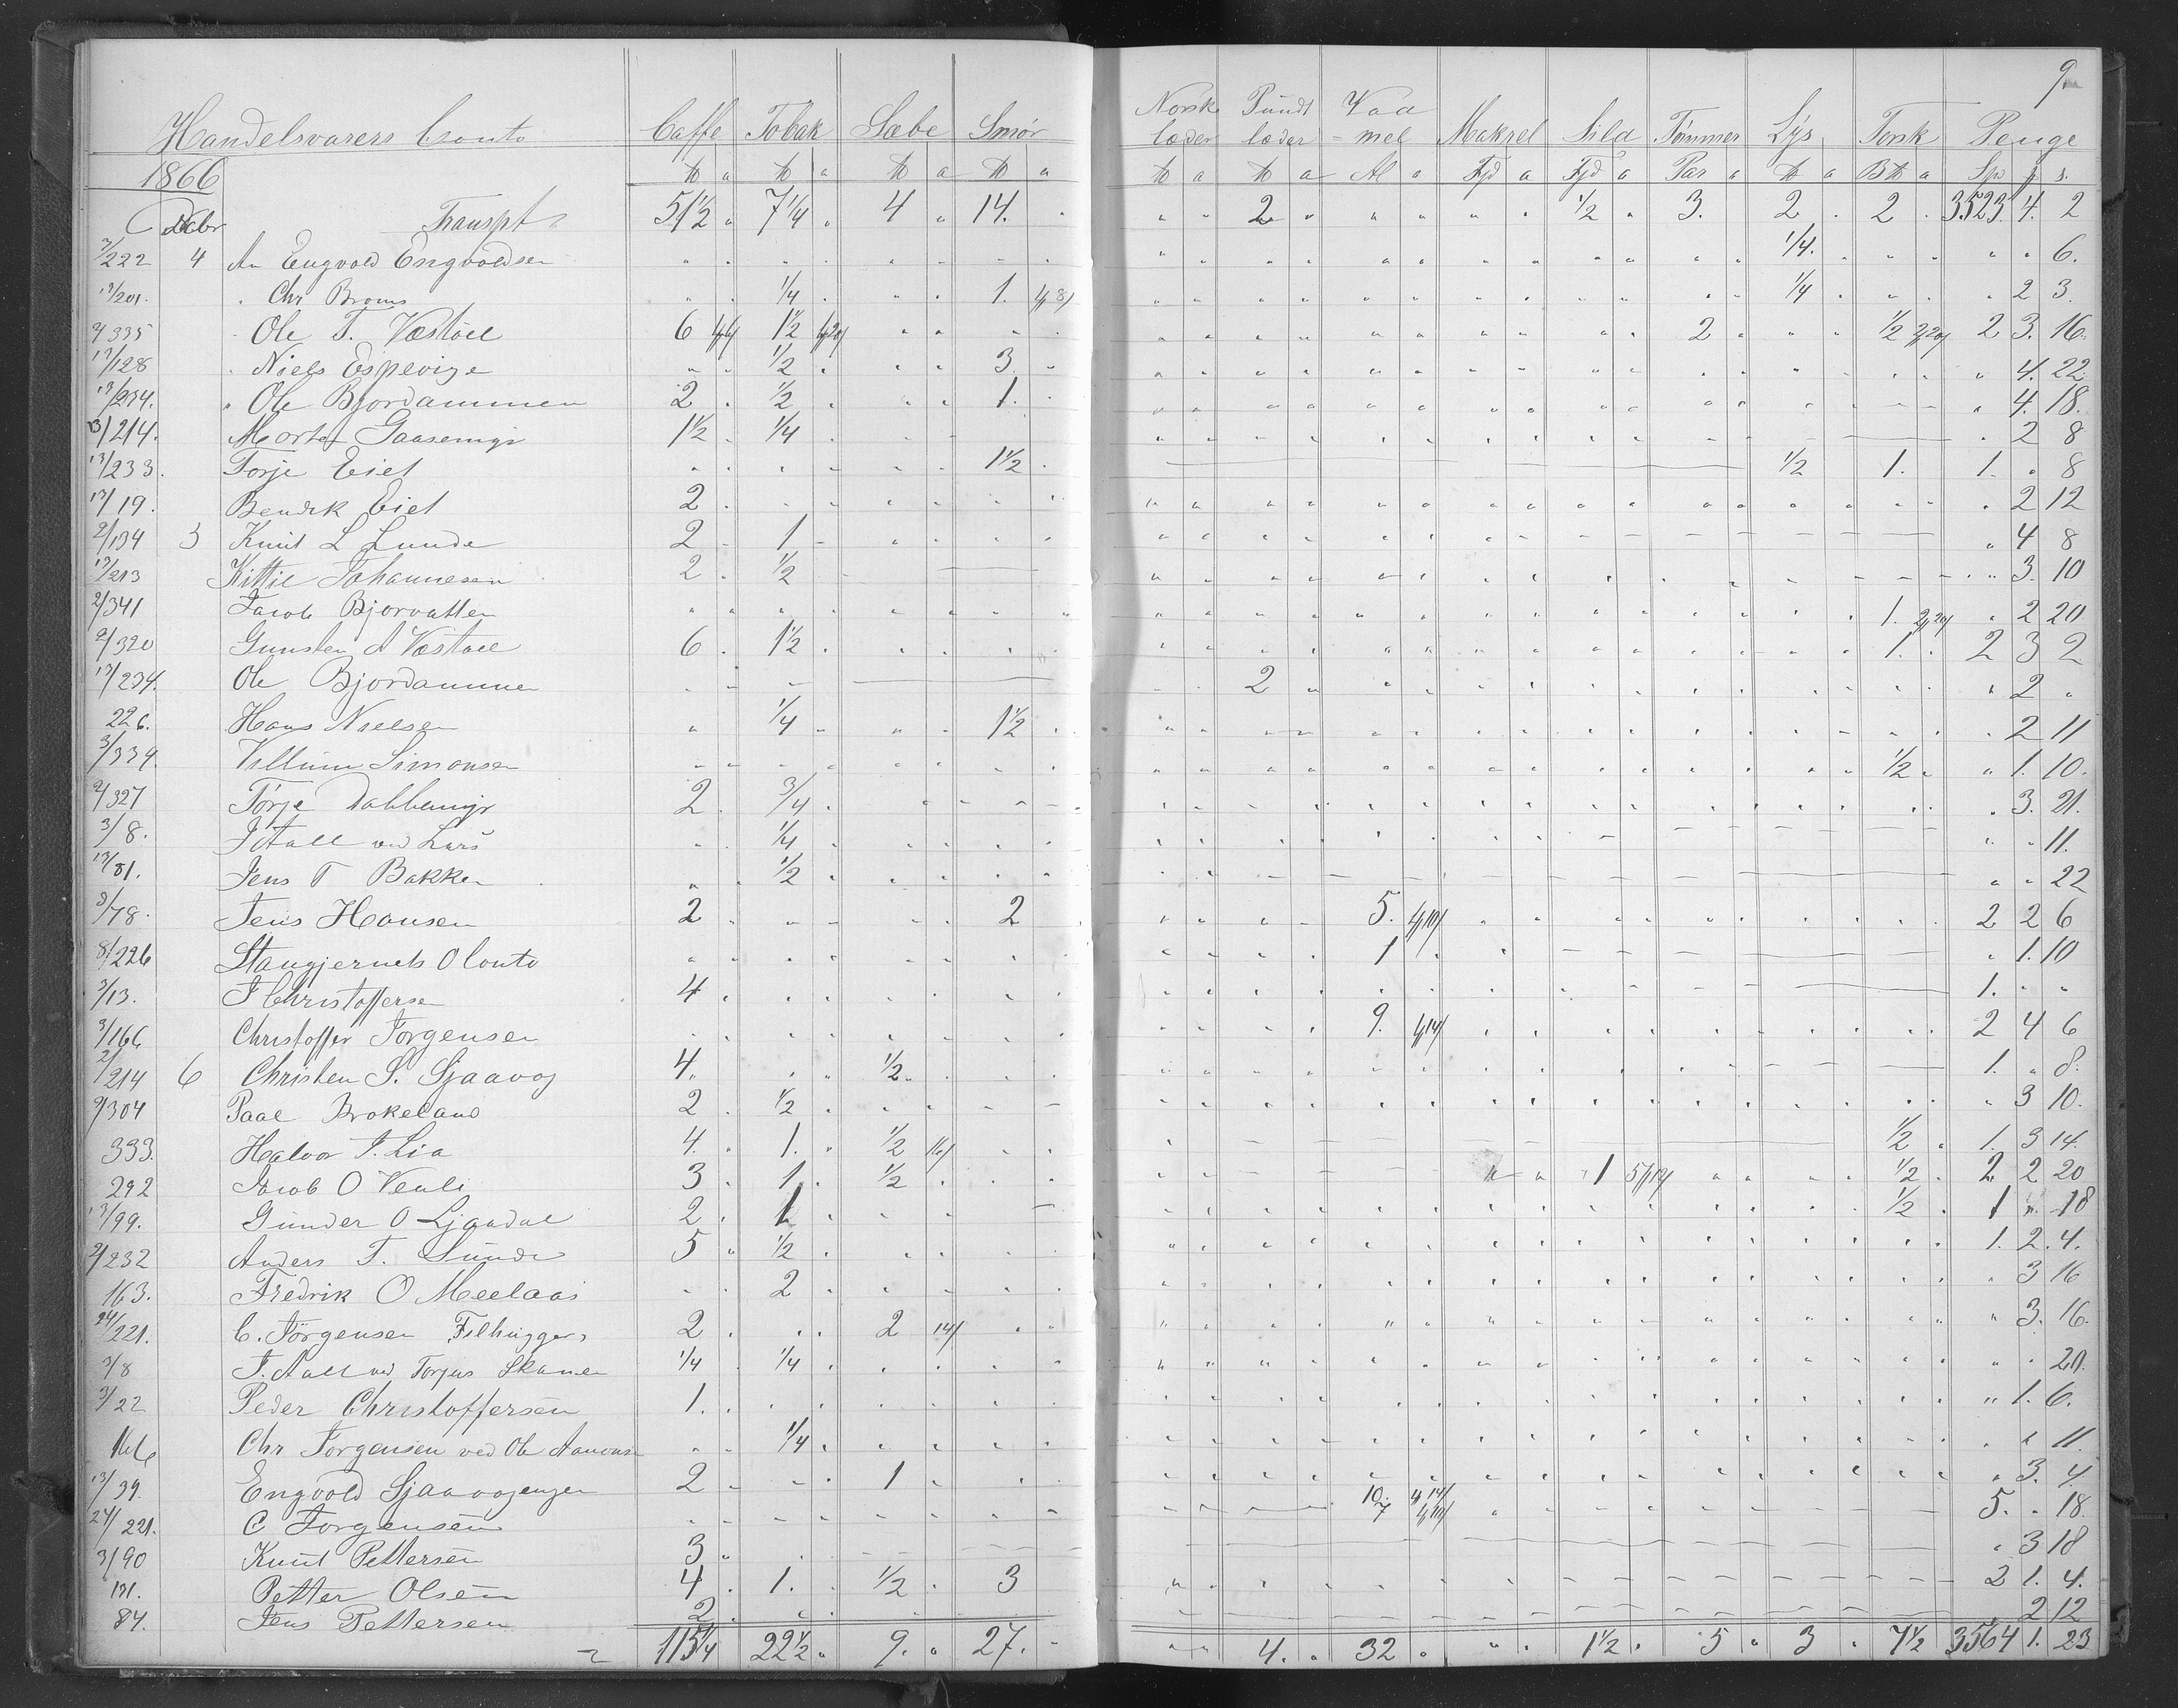 9
Handelsvarers Conto Caffe Tobak Sæbe Smør Norsk læder Pundt læder Vadmel Makrel Sild Tømmer Lÿs Torsk Penge
1866 ℔ a ℔ a ℔ a ℔ a ℔ a ℔ a Al a Fjd a Fjd a Par a ℔ a B℔ a Spd
Decbr Transpt 51 1/2 " 7 1/4 " 4 " 14. " " " 2 " " " " " 1/2 " 3. 2 . 2 . 3523. 4. 2
3/222 4 An Engvold Engvoldsen 1/4. " " 6.
13/201. " Chr Broms 1/4 1. 1/4 " 2 3.
2/335 " Ole T. Væstöel 6 1 1/2 2 1/2 2 3. 16.
13/128 " Niels Espevige 1/2 3 " 4. 22.
13/234. " Ole Bjordammen 2 1/2 1. " 4. 18.
13/214. Morten Gaasemyr 1 1/2 1/4 " 2 8
13/233. Torje Eiet 1 1/2 1/2 1. 1. " 8
13/19. Bendik Eiet 2 " 2 12
2/134 3 Knut L Lunde 2 1 " 4 8
13/213 Kittil Johannesen 2 1/2 " 3. 10
2/341 Jacob Bjorvatten 1. " 2 20
2/320 Gunsten A Væstöel 6 1 1/2 1. 2 3 2
13/234. Ole Bjordammen 2 " 2 "
226. Hans Nielsen 1/4 1 1/2 " 2 11
3/334. Villum Simonsen 1/2 " 1. 10.
2/327 Törje Dalbemyr 2 3/4 " 3. 21.
3/8. J Aall ved Lars 1/4 " " 11.
13/81. Jens T Bakken 1/2 " " 22
3/78. Jens Hansen 2 2 5. 2 2 6
8/226 Stangjernets Conto 1 " 1. 10
3/13. J Christoffersen 4 1. " "
3/166 Christoffer Jorgensen 9. 2 4 6
2/214 6 Christen S. Sjaavog 4 1/2 1. " 8.
2/304 Paal Brokeland 2 1/2 " 3 10.
333. Halvor T. Lia 4. 1. 1/2 1/2 1. 3 14.
292 Jacob O Veule 3 1 1/2 1 1/2 2 2 20
13/99. Gunder O Ljaadal 2 1 1/2 1 " 18
2/232 Anders T. Sunde 5 1/2 1. 2. 4.
163. Fredrik O Meelaas 2 " 3 16
24/221. C. Jörgensen Filhugger 2 2 " 3. 16.
3/8 J. Aall ved Torjus Skanen 1/4 1/4 " " 20.
3/22 Peder Christoffersen 1. " 1. 6.
166 Chr Jorgensen ved Ole Aanonsen 1/4 " " 11.
13/39. Engvold Sjaavogengen 2 1 " 3. 4.
24/221. C Jorgensen 10. 7 5. " 18.
3/90 Knut Pettersen 3 " 3 18
131. Petter Olsen 4 1. 1/2 3 2 1. 4.
84. Jens Pettersen 2 " 2 12
115 1/4 22 1/2 " 9. " 27. " " " 4. " 32 " " " 1 1/2 " 5 " 3 . 7 1/2 3564 1. 23